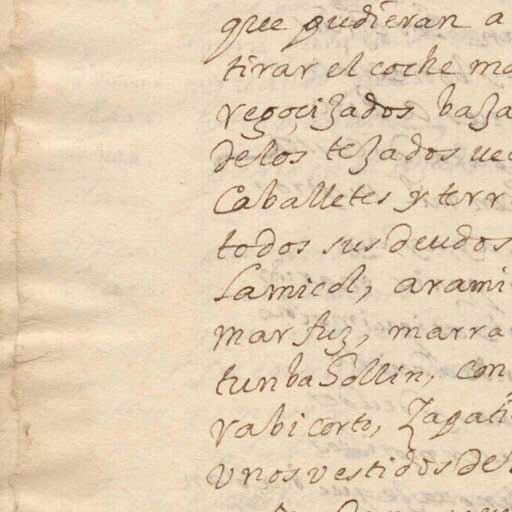 que pudieran a
tirar el coche ma
regoçiZados baZa
delos teZados ue
Caballetes y terr
todos sus deudos
Lamicol, arami
marfuz, marra
tunbaSollin, con
rabicorto, Zagati
Vnos vestidos de